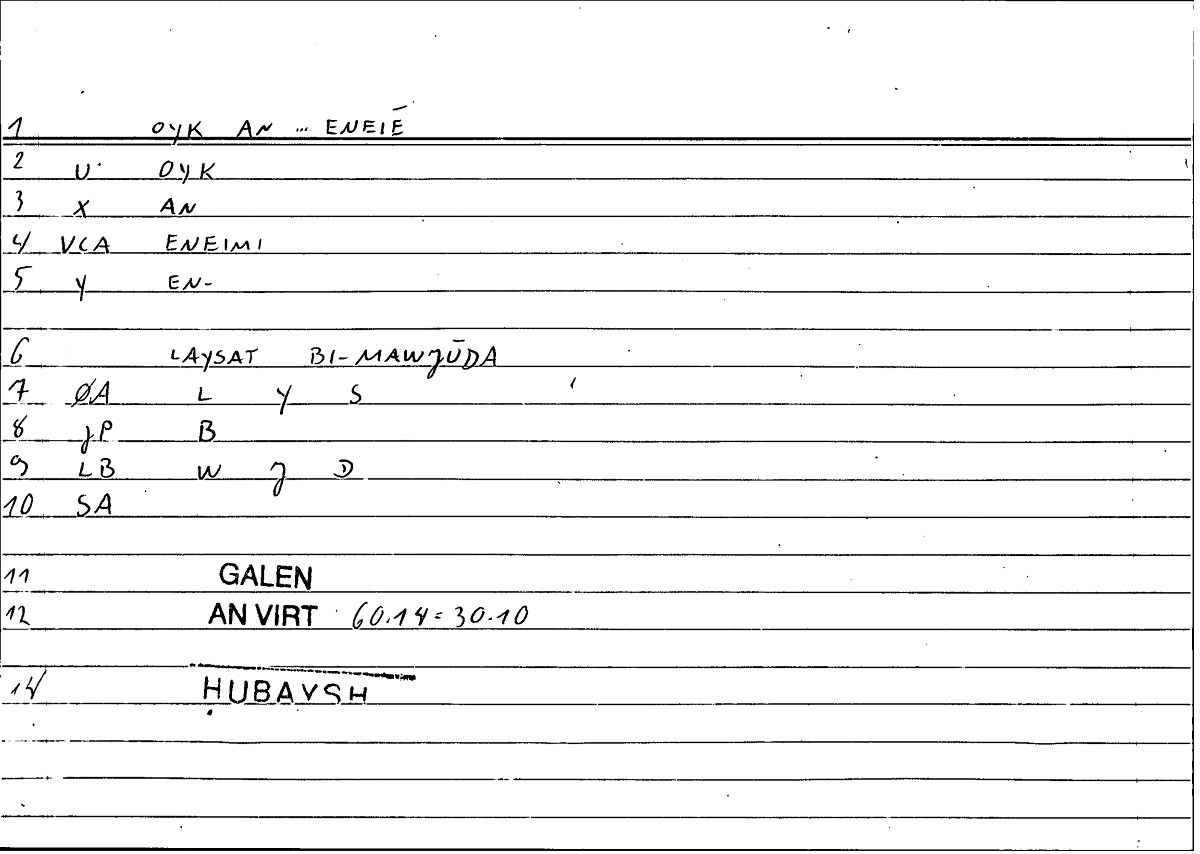 1 OYK AN ... ENEIĒ
2 U· OYK
3 X AN
4 VCA ENEIMI
5 Y EN-
6 LAYSAT BI-MAWJŪDA
7 ØA L Y S
8 JP B
9 LB W J D
10 SA
11 GALEN
12 AN VIRT 60.14=30.10
14 ḤUBAYSH